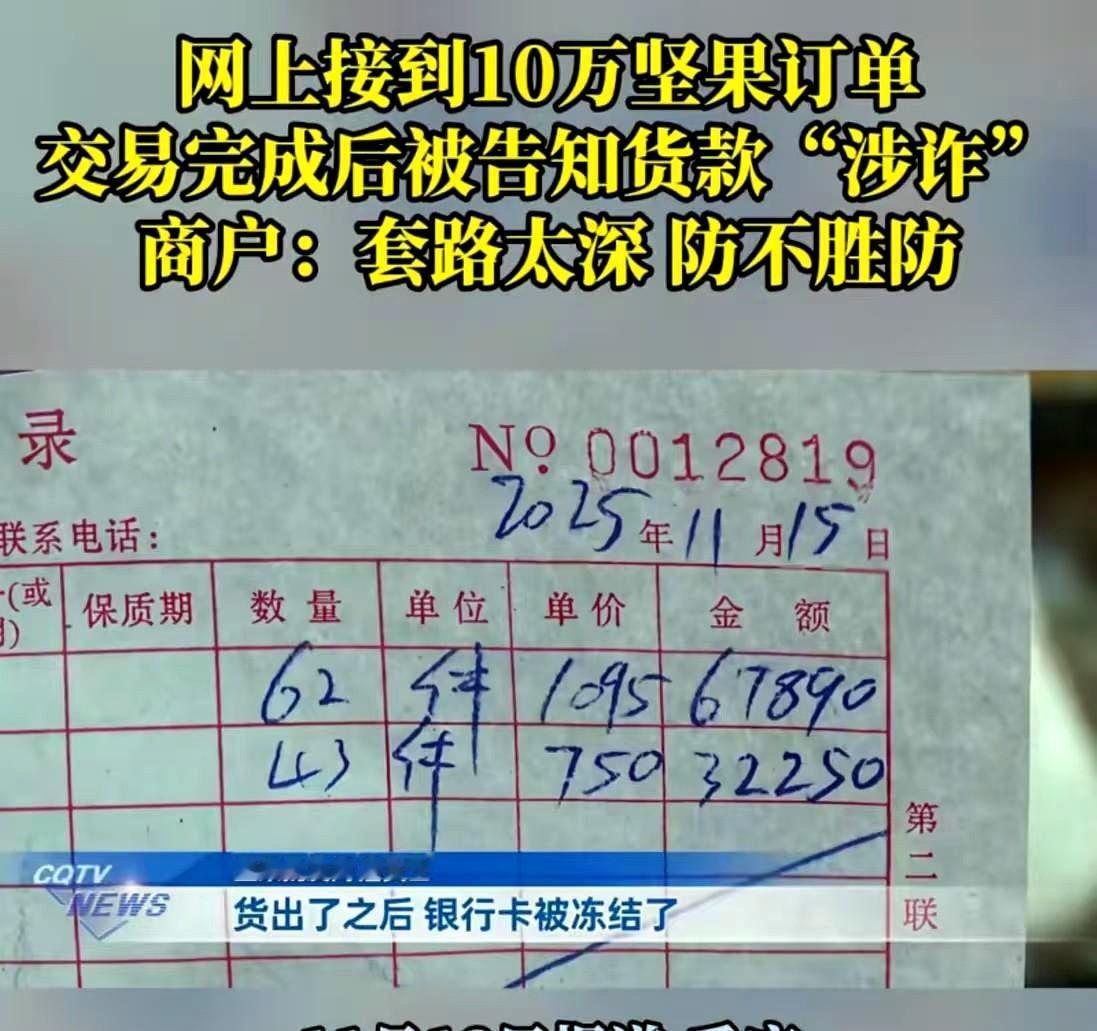 网上接到10万坚果订单
交易完成后被告知货款“涉诈”
商户：套路太深 防不胜防
录
No. 0012819
联系电话：
2025年11月15日
(或
保质期 数量 单位 单价 金额
62 件 1095 67890
43 件 750 32250
第二联
CQTV
NEWS
货出了之后 银行卡被冻结了